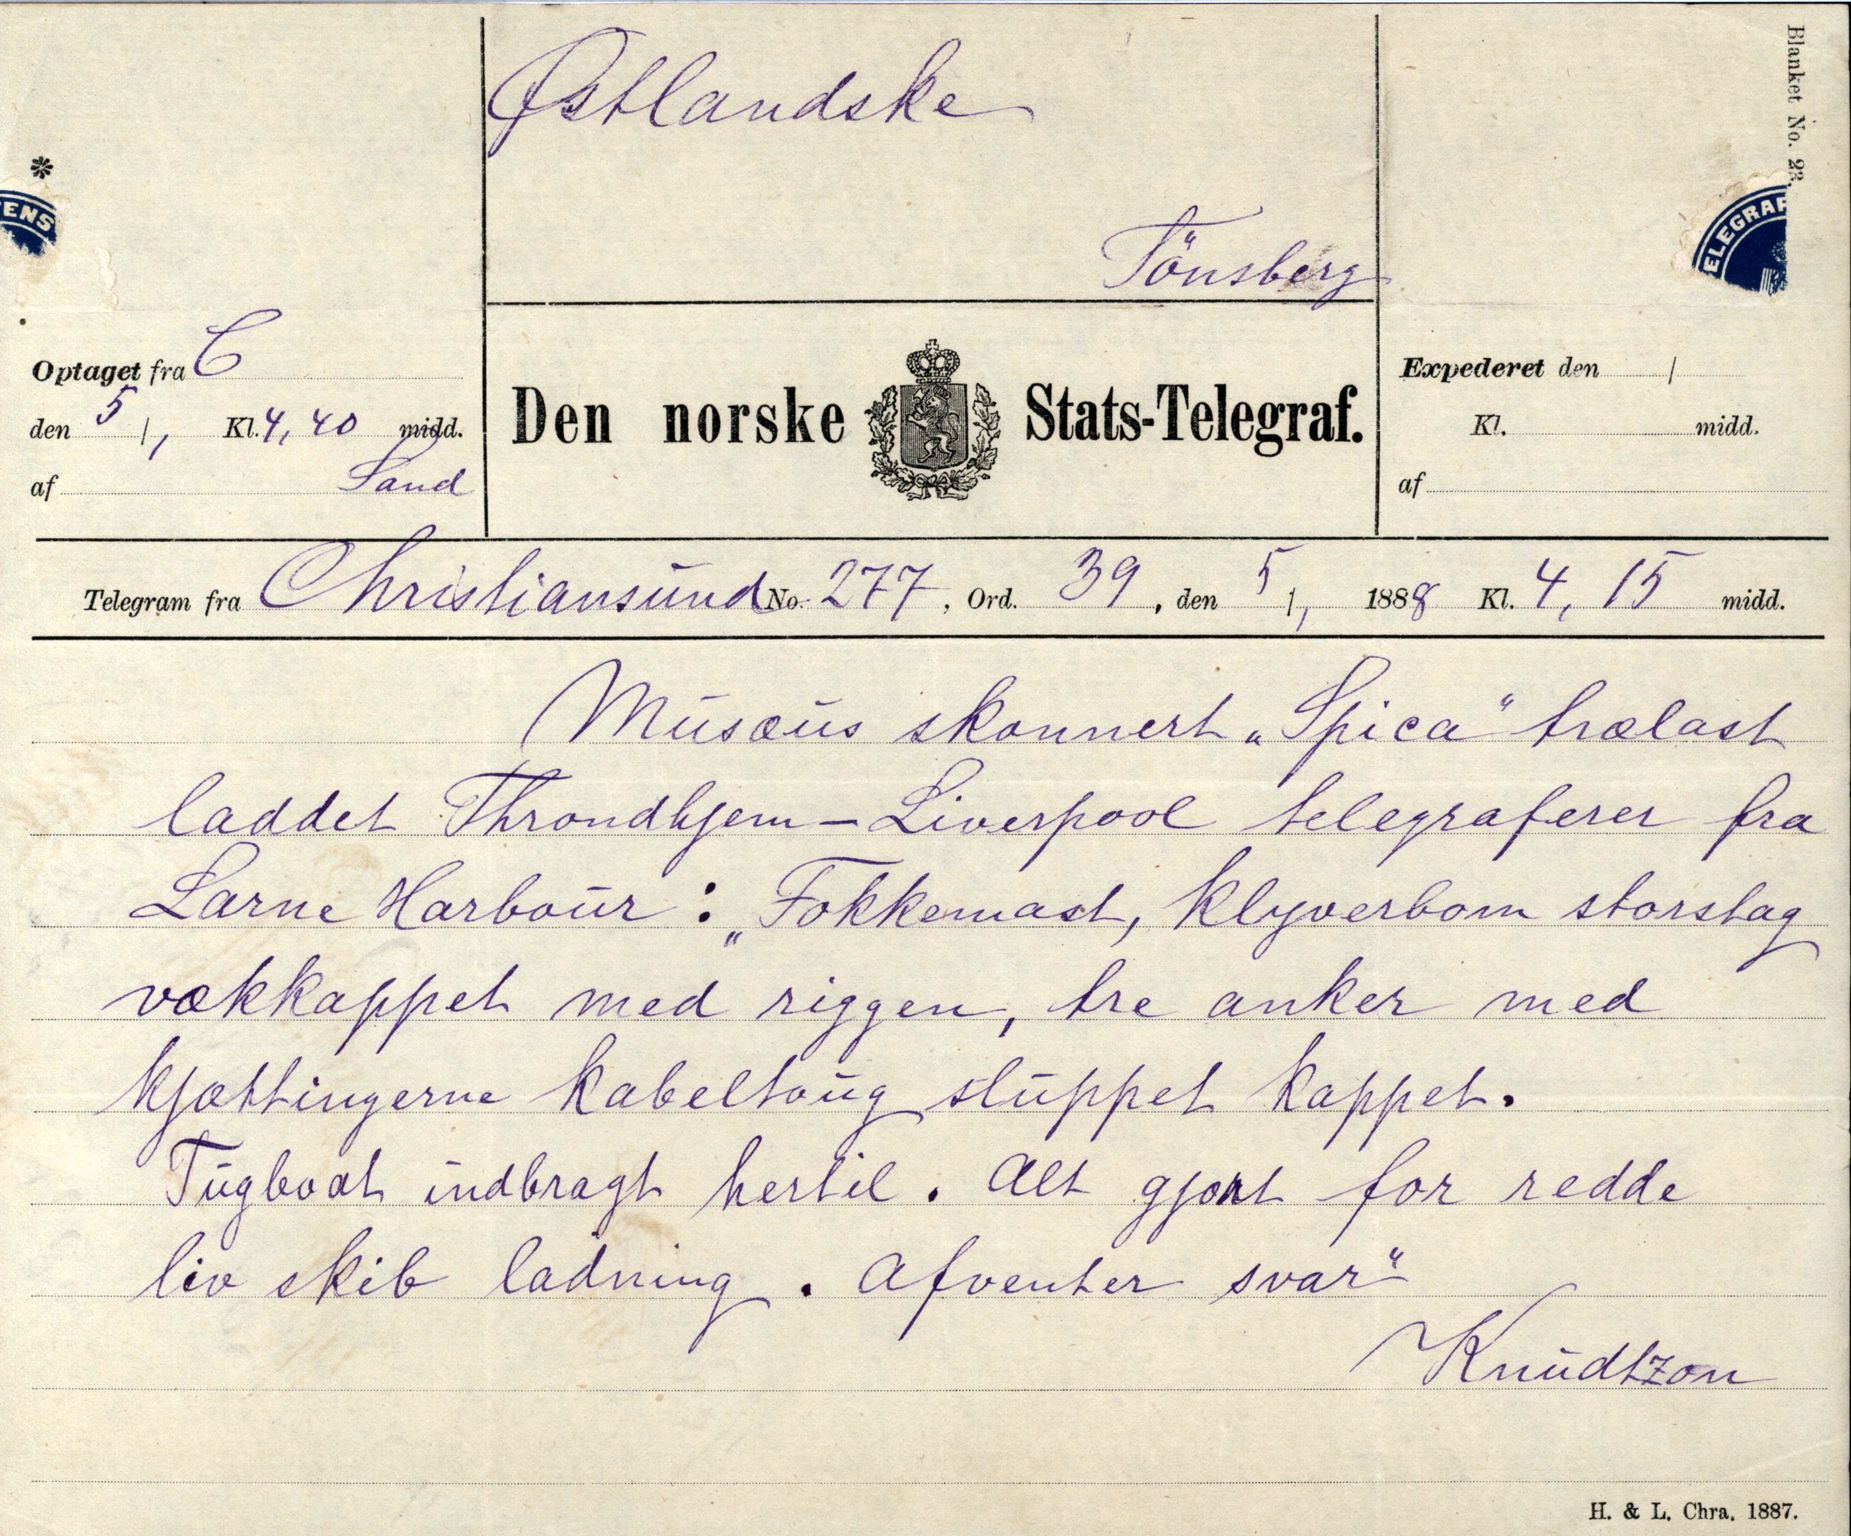 Blanket No. 23.
Østlandske
Tönsberg
ENS
ELEGRAF
Optaget fra C
den 5/1, Kl. 4,40 midd.
af Sand
Den norske Stats-Telegraf.
Expederet den /
Kl. midd.
af
Telegram fra Christiansund No. 277, Ord. 39, den 5/1, 1888 Kl. 4,15 midd.
Musæus skonnert „Spica" trælast
laddet Throndhjem - Liverpool telegraferer fra
Larne Harbour : „Fokkemast, klyverbom storstag
vækkappet med riggen, tre anker med
kjættingerne kabeltoug sluppet kappet.
Tugboat indbragt hertil. Alt gjort for redde
liv skib ladning. Afventer svar"
Knudtzon
H. & L. Chra. 1887.